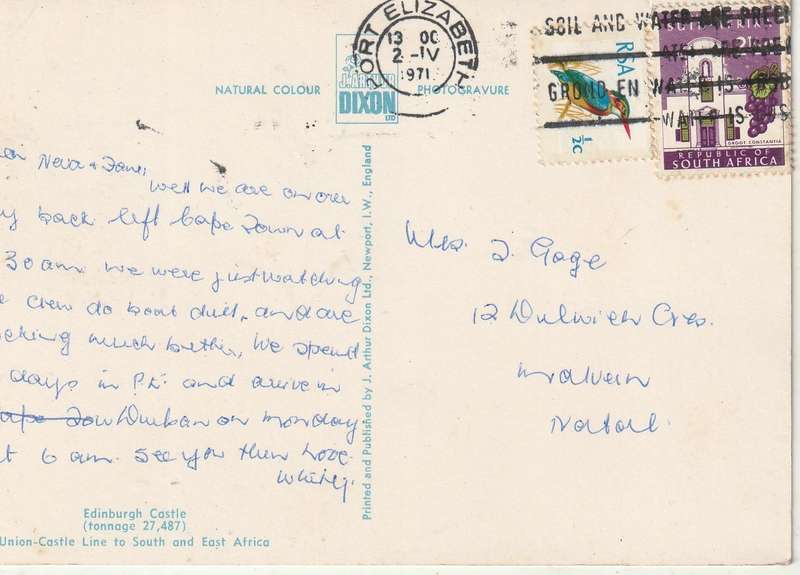 PORT ELIZABETH
13 00
2-IV
1971
SOIL AND WATER ARE PRECI
GROND EN WATER IS KOSB
RSA
½c
2½c
GROOT CONSTANTIA
REPUBLIC OF
SOUTH AFRICA
NATURAL COLOUR
J. ARTHUR
DIXON
LTD
PHOTOGRAVURE
Neva &
Well we are on our
back left Cape Town at
30 am. We were just watching
crew do boat drill, and are
much better, We spend
days in P.E. and arrive in
Durban on monday
6 am. See you then Love
Printed and Published by J. Arthur Dixon Ltd., Newport, I.W., England
Mrs. J. Gage
12 Dulwich Cres.
Malvern
Natal.
Edinburgh Castle
(tonnage 27,487)
Union-Castle Line to South and East Africa